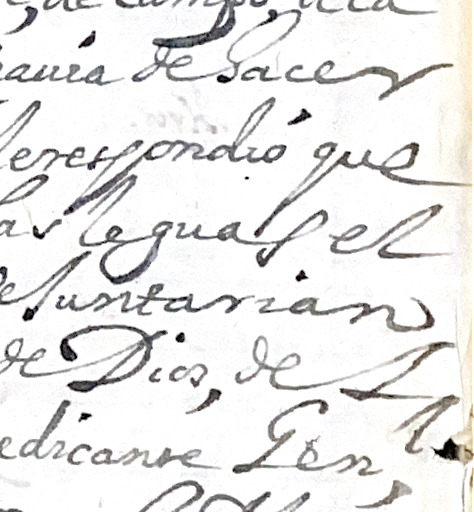 de campo, de la
havia de hacer
le respondió que
las leguas el
se juntarian
de Dios, de
edicanse Gen